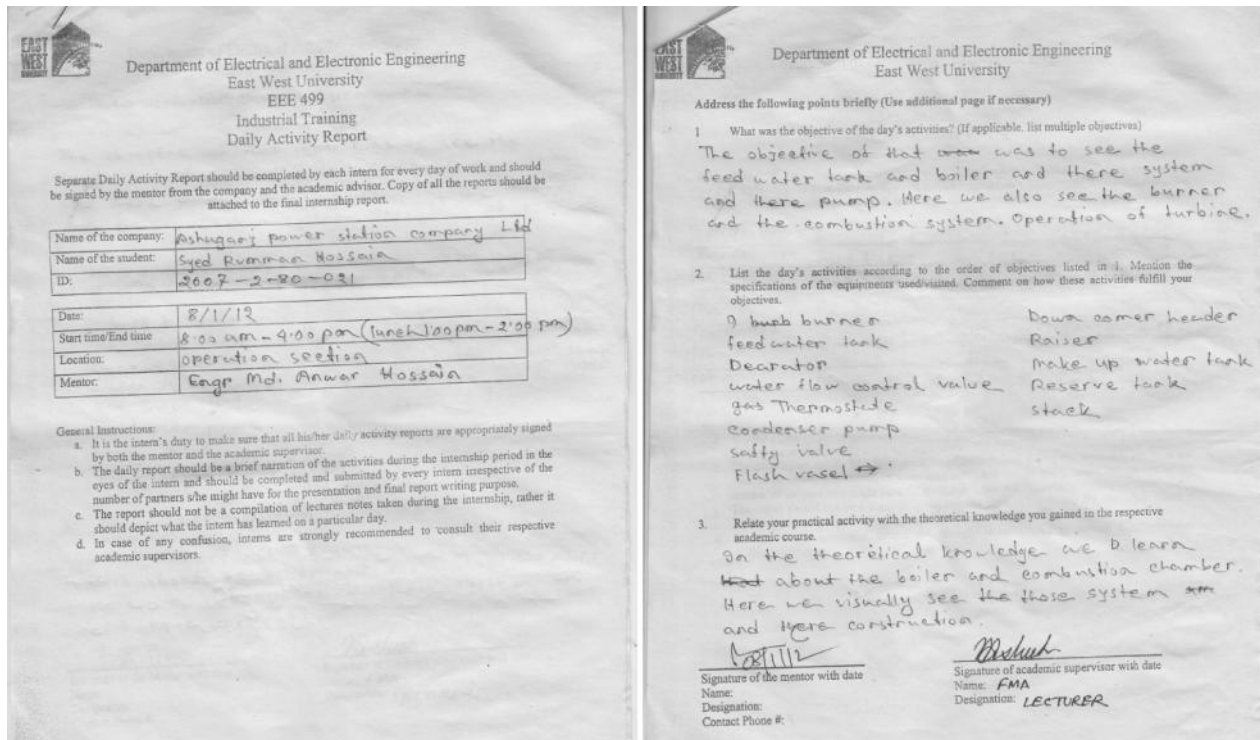 EAST
WEST
UNIVERSITY
Department of Electrical and Electronic Engineering
East West University
EEE 499
Industrial Training
Daily Activity Report
Separate Daily Activity Report should be completed by each intern for every day of work and should
be signed by the mentor from the company and the academic advisor. Copy of all the reports should be
attached to the final internship report.
Name of the company: Ashuganj power station company Ltd
Name of the student: Syed Rumman Hossain
ID: 2007-2-80-021
Date: 8/1/12
Start time/End time 8.00 am - 4.00 pm (lunch 1:00 pm - 2:00 pm)
Location: operation section
Mentor: Engr Md. Anwar Hossain
General Instructions:
a. It is the intern's duty to make sure that all his/her daily activity reports are appropriately signed
by both the mentor and the academic supervisor.
b. The daily report should be a brief narration of the activities during the internship period in the
eyes of the intern and should be completed and submitted by every intern irrespective of the
number of partners s/he might have for the presentation and final report writing purpose.
c. The report should not be a compilation of lectures notes taken during the internship, rather it
should depict what the intern has learned on a particular day.
d. In case of any confusion, interns are strongly recommended to consult their respective
academic supervisors.
EAST
WEST
UNIVERSITY
Department of Electrical and Electronic Engineering
East West University
Address the following points briefly (Use additional page if necessary)
1 What was the objective of the day's activities? (If applicable, list multiple objectives)
The objective of that was to see the
feed water tank and boiler and there system
and there pump. Here we also see the burner
and the combustion system. Operation of turbine.
2. List the day's activities according to the order of objectives listed in 1. Mention the
specifications of the equipments used/visited. Comment on how these activities fulfill your
objectives.
burner
feed water tank
Dearator
water flow control value
gas Thermostate
condenser pump
saffy valve
Flash vasel
Down comer header
Raiser
make up water tank
Reserve tank
stack
3. Relate your practical activity with the theoretical knowledge you gained in the respective
academic course.
In the theoretical knowledge we learn
about the boiler and combustion chamber.
Here we visually see the those system
and there construction.
08/1/12
Signature of the mentor with date
Name:
Designation:
Contact Phone #:
Signature of academic supervisor with date
Name: FMA
Designation: LECTURER